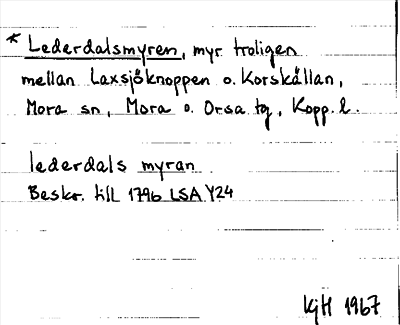 * Lederdalsmyren, myr troligen
mellan Laxsjöknoppen o. Korskällan,
Mora sn, Mora o. Orsa tg, Kopp. l.
lederdals myran
Beskr. till 1796 LSA Y24
KjH 1967